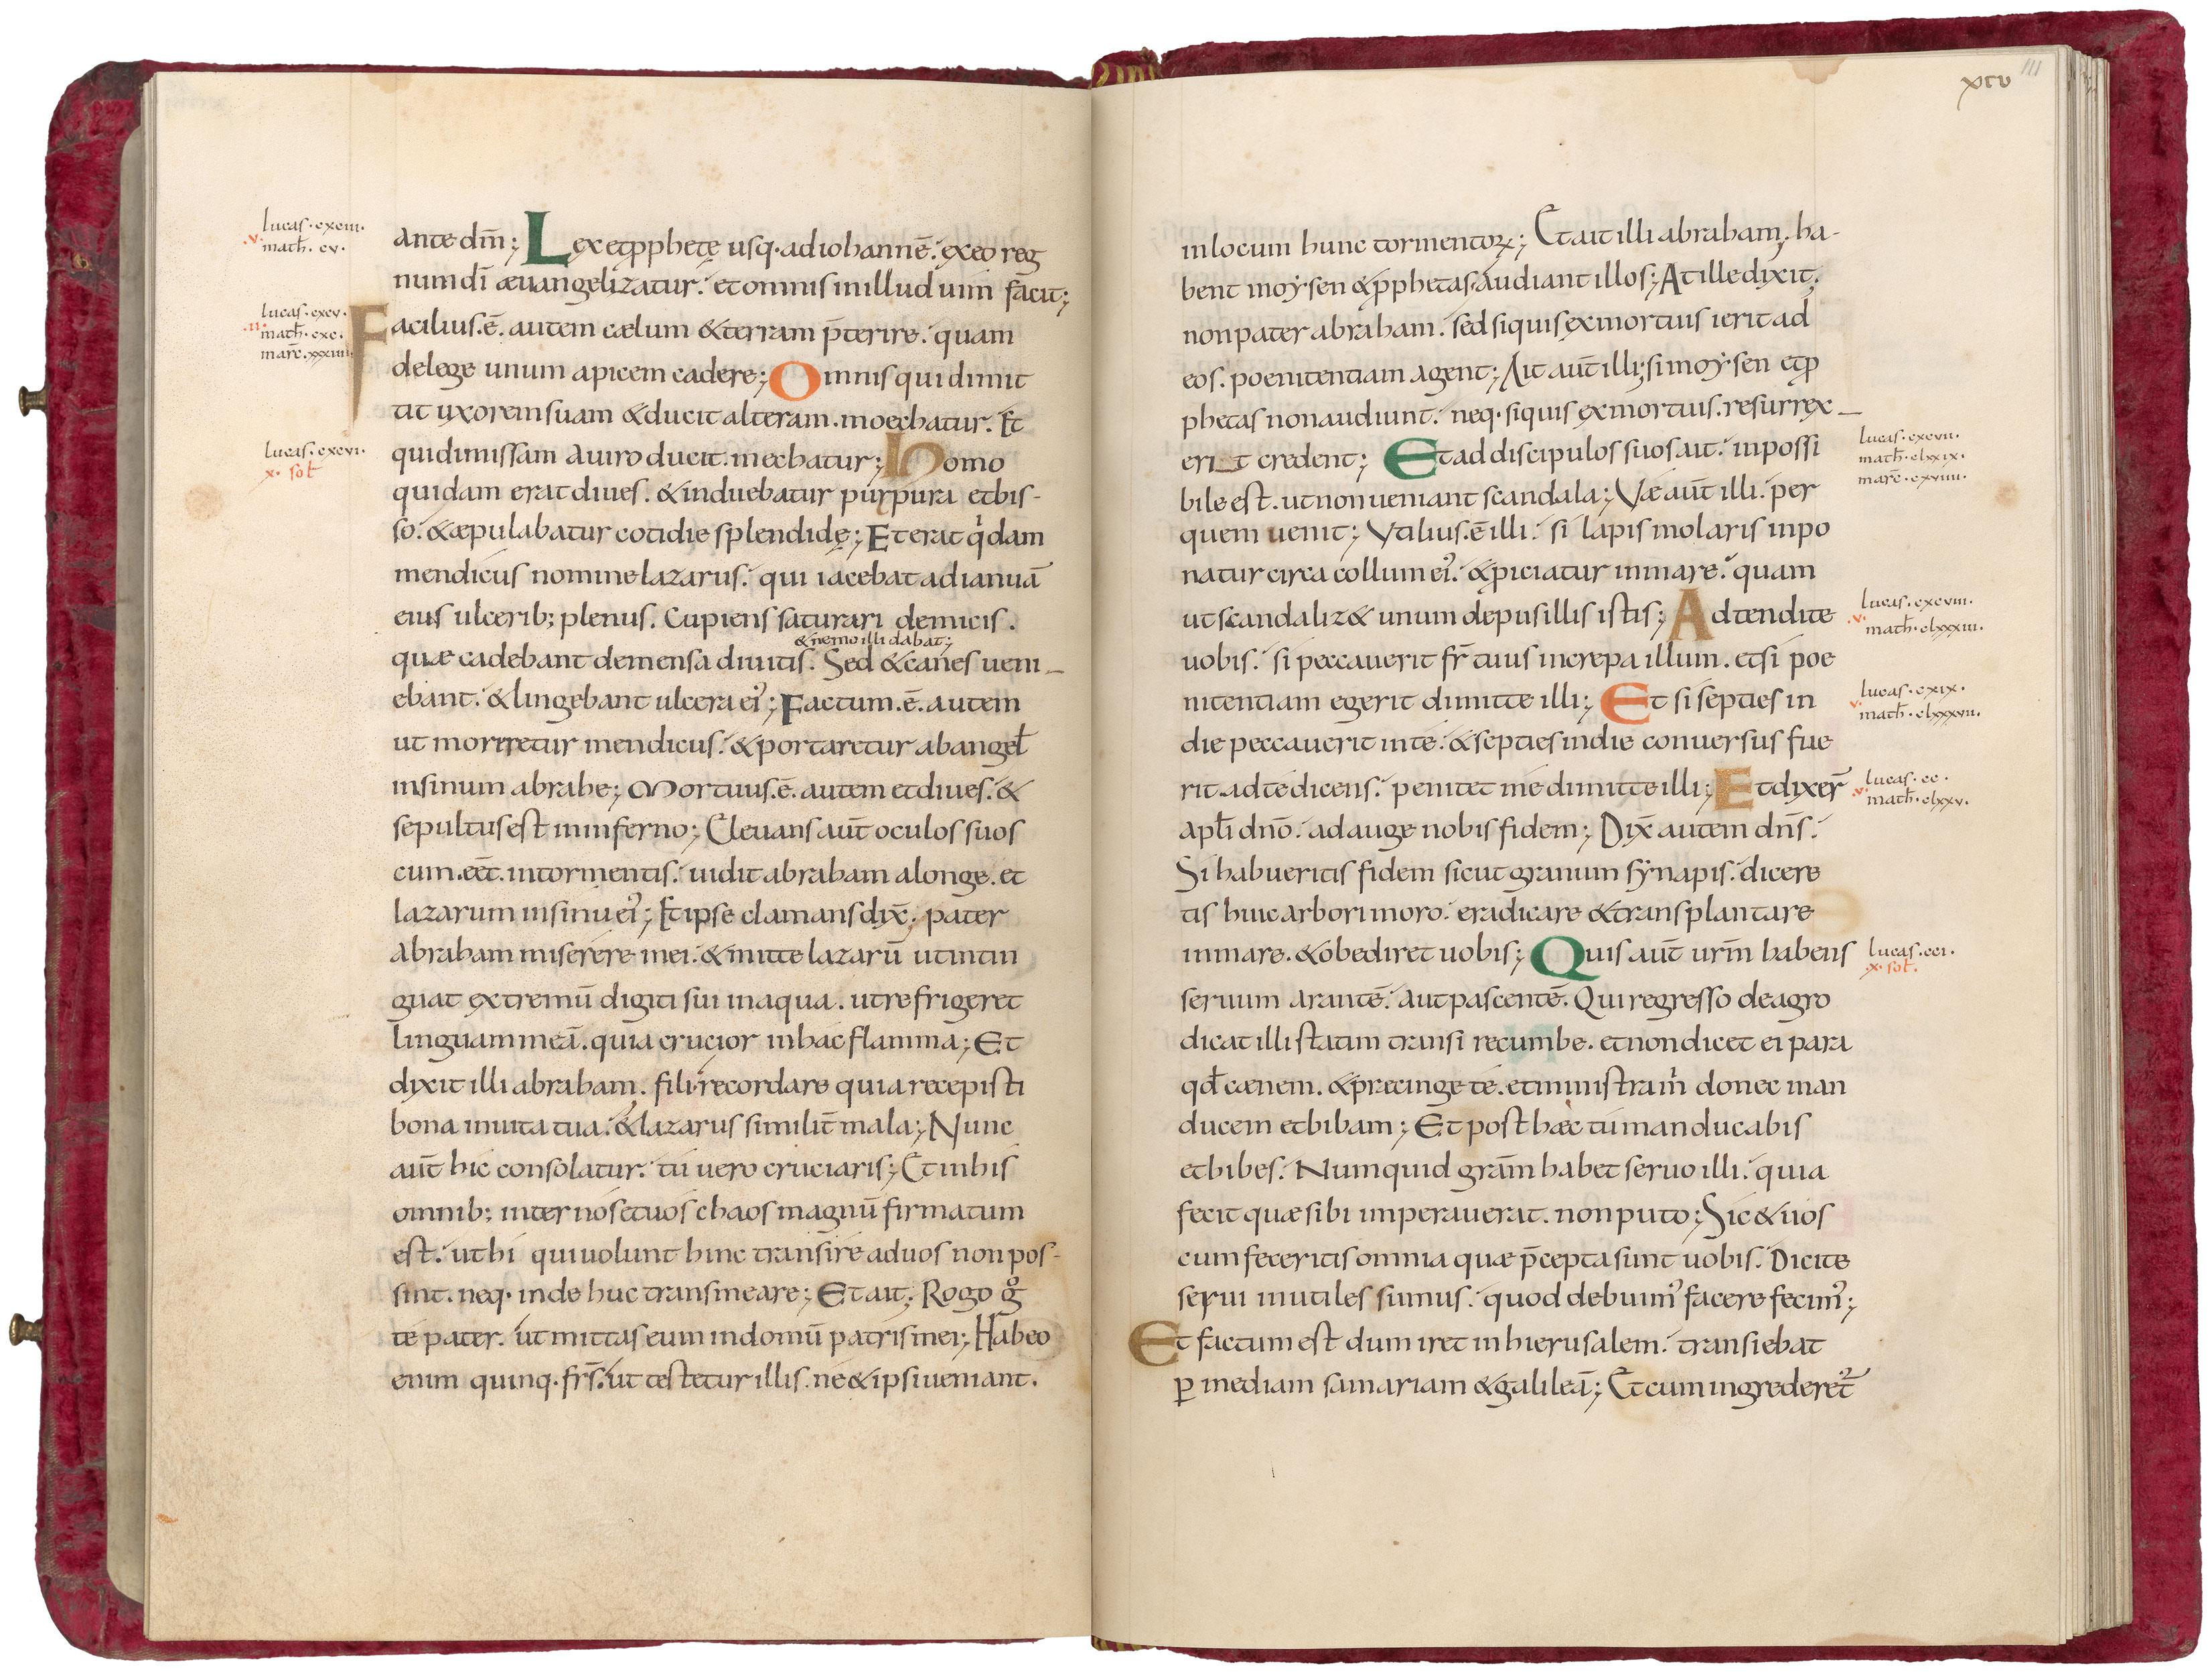 lucas · cxciiii ·
· v · math̄ · cv ·
lucas · cxcv ·
· ii · math̄ · cxc ·
marc̄ · xxxiiii
lucas · cxcvi ·
x · sot̄
ante dm̄; Lex et pphetę usq· ad iohannē. exeo reg
num dī æuangelizatur. et omnis in illud uim facit;
Facilius. ē. autem cælum & terram p̄terire. quam
de lege unum apicem cadere; Omnis qui dimit
tit uxorem suam & ducit alteram. moechatur. Et
qui dimissam a uiro ducit. mechatur; homo
quidam erat diues. & induebatur purpura et bis-
so. & æpulabatur cotidie splendidę; Et erat qdam
mendicus nomine lazarus. qui iacebat ad ianuā
eius ulcerib; plenus. Cupiens saturari de micis.
& nemo illi dabat;
quæ cadebant de mensa diuitis. Sed & canes ueni
ebant. & lingebant ulcera ei'; Factum. ē. autem
ut moreretur mendicus. & portaretur ab angel̄
in sinum abrahe; Mortuus. ē. autem et diues. &
sepultus est in inferno; Eleuans aut̄ oculos suos
cum. eēt. in tormentis. uidit abraham a longe. et
lazarum in sinu ei'; Et ipse clamans dix̄. pater
abraham miserere mei. & mitte lazarū ut intin
guat extremū digiti sui in aqua. ut refrigeret
linguam meā. quia crucior in hac flamma; Et
dixit illi abraham. fili recordare quia recepisti
bona in uita tua. & lazarus similit̄ mala; Nunc
aut̄ hic consolatur. tu vero cruciaris; Et in his
omnib; inter nos et uos chaos magnū firmatum
est. ut hi qui uolunt hinc transire ad uos non pos-
sint. neq· inde huc transmeare; Et ait; Rogo g̊
te pater. ut mittas eum in domū patris mei; Habeo
enim quinq· frs̄. ut testetur illis. ne & ipsi ueniant.
111
xcv
in locum hunc tormentoꝝ; Et ait illi abraham. ha-
bent moysen & pphetas. audiant illos; At ille dixit.
non pater abraham. sed si quis ex mortuis ierit ad
eos. poenitentiam agent; Ait aut̄ illi; si moysen et p
phetas non audiunt. neq· si quis ex mortuis. resurrex
erit credent; Et ad discipulos suos ait. inpossi
bile est. ut non ueniant scandala; Væ aut̄ illi. per
quem uenit; Vtilius. ē illi. si lapis molaris inpo
natur circa collum ei'. & piciatur in mare. quam
ut scandaliz& unum de pusillis istis; Adtendite
uobis. si peccauerit fr̄ tuus increpa illum. et si poe
nitentiam egerit dimitte illi; Et si septies in
die peccauerit in te. & septies in die conuersus fue
rit ad te dicens. penitet me dimitte illi; Et dixer̄
apl̄i dnō. adauge nobis fidem; Dix̄ autem dns̄.
Si habueritis fidem sicut granum synapis. dicere
tis huic arbori moro. eradicare & transplantare
in mare. & obediret uobis; Quis aut̄ urm̄ habens
seruum arantē. aut pascentē. Qui regresso de agro
dicat illi statim transi recumbe. et non dicet ei para
qđ cænem. & præcinge te. et ministra m̊ donec man
ducem et bibam; Et post hæc tu manducabis
et bibes. Numquid gram̄ habet seruo illi. quia
fecit quæ sibi imperauerat. non puto; Sic & uos
cum feceritis omnia quæ p̄cepta sunt uobis. Dicite
serui inutiles sumus. quod debuim' facere fecim';
Et factum est dum iret in hierusalem. transiebat
ꝑ mediam samariam & galileā; Et cum ingrederet̄
lucas · cxcvii ·
math̄ · clxxix ·
marc̄ · cxviiii ·
lucas · cxcviii ·
· v · math̄ · clxxxiii ·
lucas · cxix ·
v · math̄ · clxxxvii ·
lucas · cc ·
· v · math̄ · clxxv ·
lucas · cci ·
· x · sot̄ ·